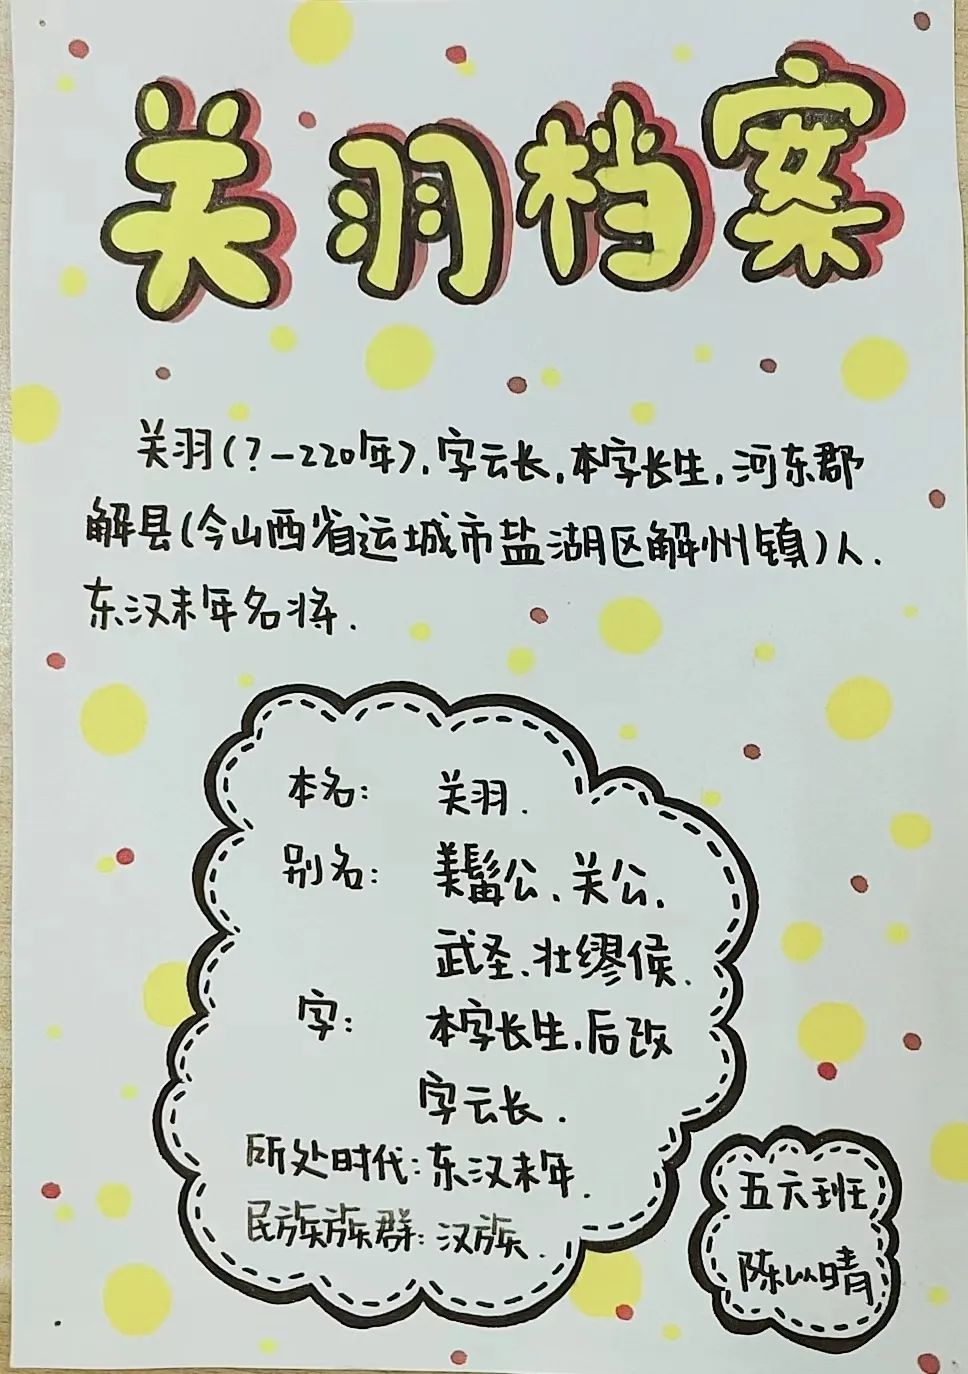 关羽档案
关羽(?-220年),字云长,本字长生,河东郡
解县(今山西省运城市盐湖区解州镇)人.
东汉末年名将.
本名: 关羽.
别名: 美髯公、关公、
武圣、壮缪侯.
字: 本字长生,后改
字云长.
所处时代:东汉末年.
民族族群:汉族.
五六班
陈以晴